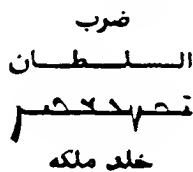 ضرب
السلطان
خلد ملكه